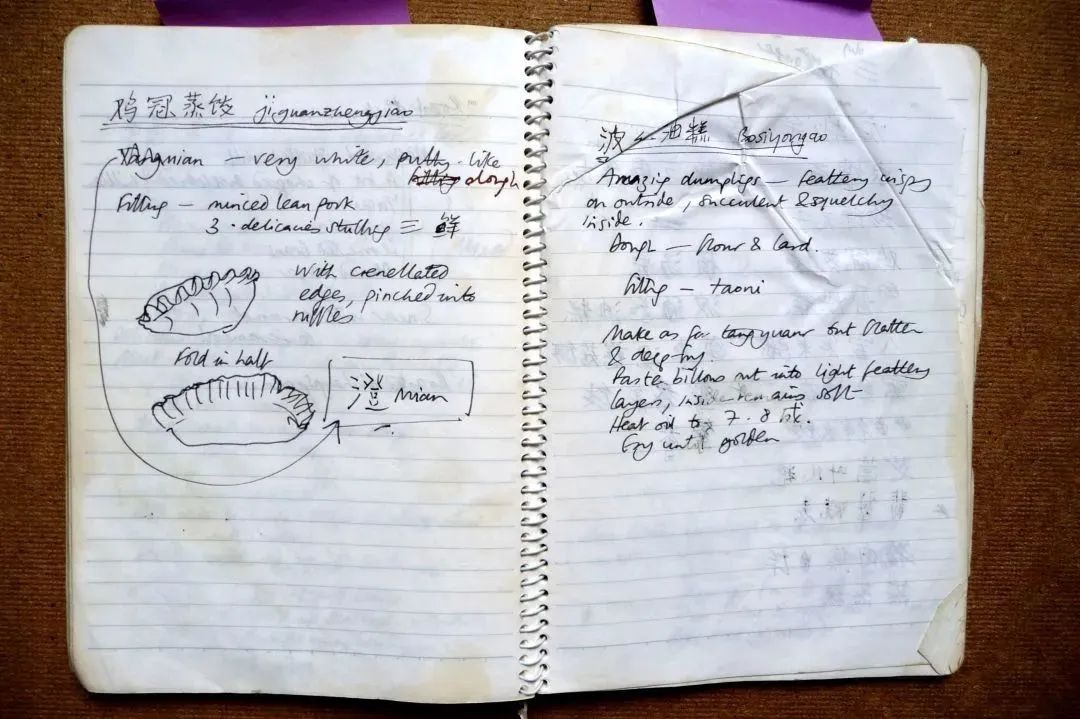 鸡冠蒸饺 jiguanzhengjiao
— very white, putty-like
dough
Filling — minced lean pork
3-delicacies stuffing 三鲜
With crenellated
edges, pinched into
ruffles
Fold in half
澄 mian
波丝油糕 Bosiyougao
Amazing dumplings — feathery crispy
on outside, succulent & squelchy
inside.
Dough — flour & lard.
Filling — taoni
Make as for tangyuan but flatten
& deep-fry
Paste billows out into light feathery
layers, inside remains soft
Heat oil to 7-8 成.
Fry until golden